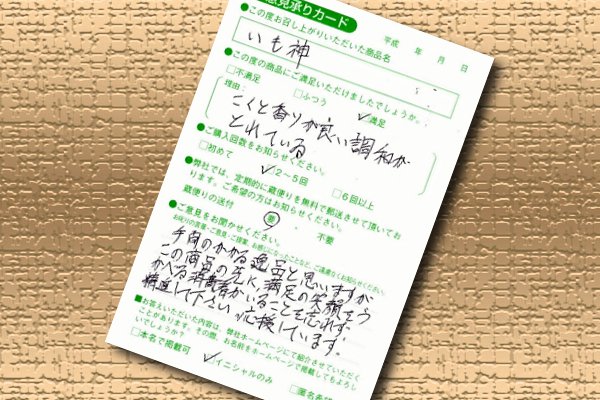 意見承りカード
平成　年　月　日
●この度お召し上がりいただいた商品名
いも神
●この度の商品にご満足いただけましたでしょうか。
□不満足　□ふつう　☑満足
理由:
こくと香りが良い調和が
とれている
●ご購入回数をお知らせください。
□初めて　☑2〜5回　□6回以上
●弊社では、定期的に蔵便りを無料で郵送させて頂いてお
ります。ご希望の方はお知らせください。
蔵便りの送付　要　・　不要
●ご意見をお聞かせください。
手間のかかる逸品と思いますが
この商品の先に、満足の笑顔をう
かべる消費者がいることを忘れず
精進して下さい。応援しています。
■お答えいただいた内容は、弊社ホームページにて紹介させていただく
ことがあります。その際、お名前をホームページで掲載してもよろし
いでしょうか？
□本名で掲載可　☑イニシャルのみ　□匿名希望